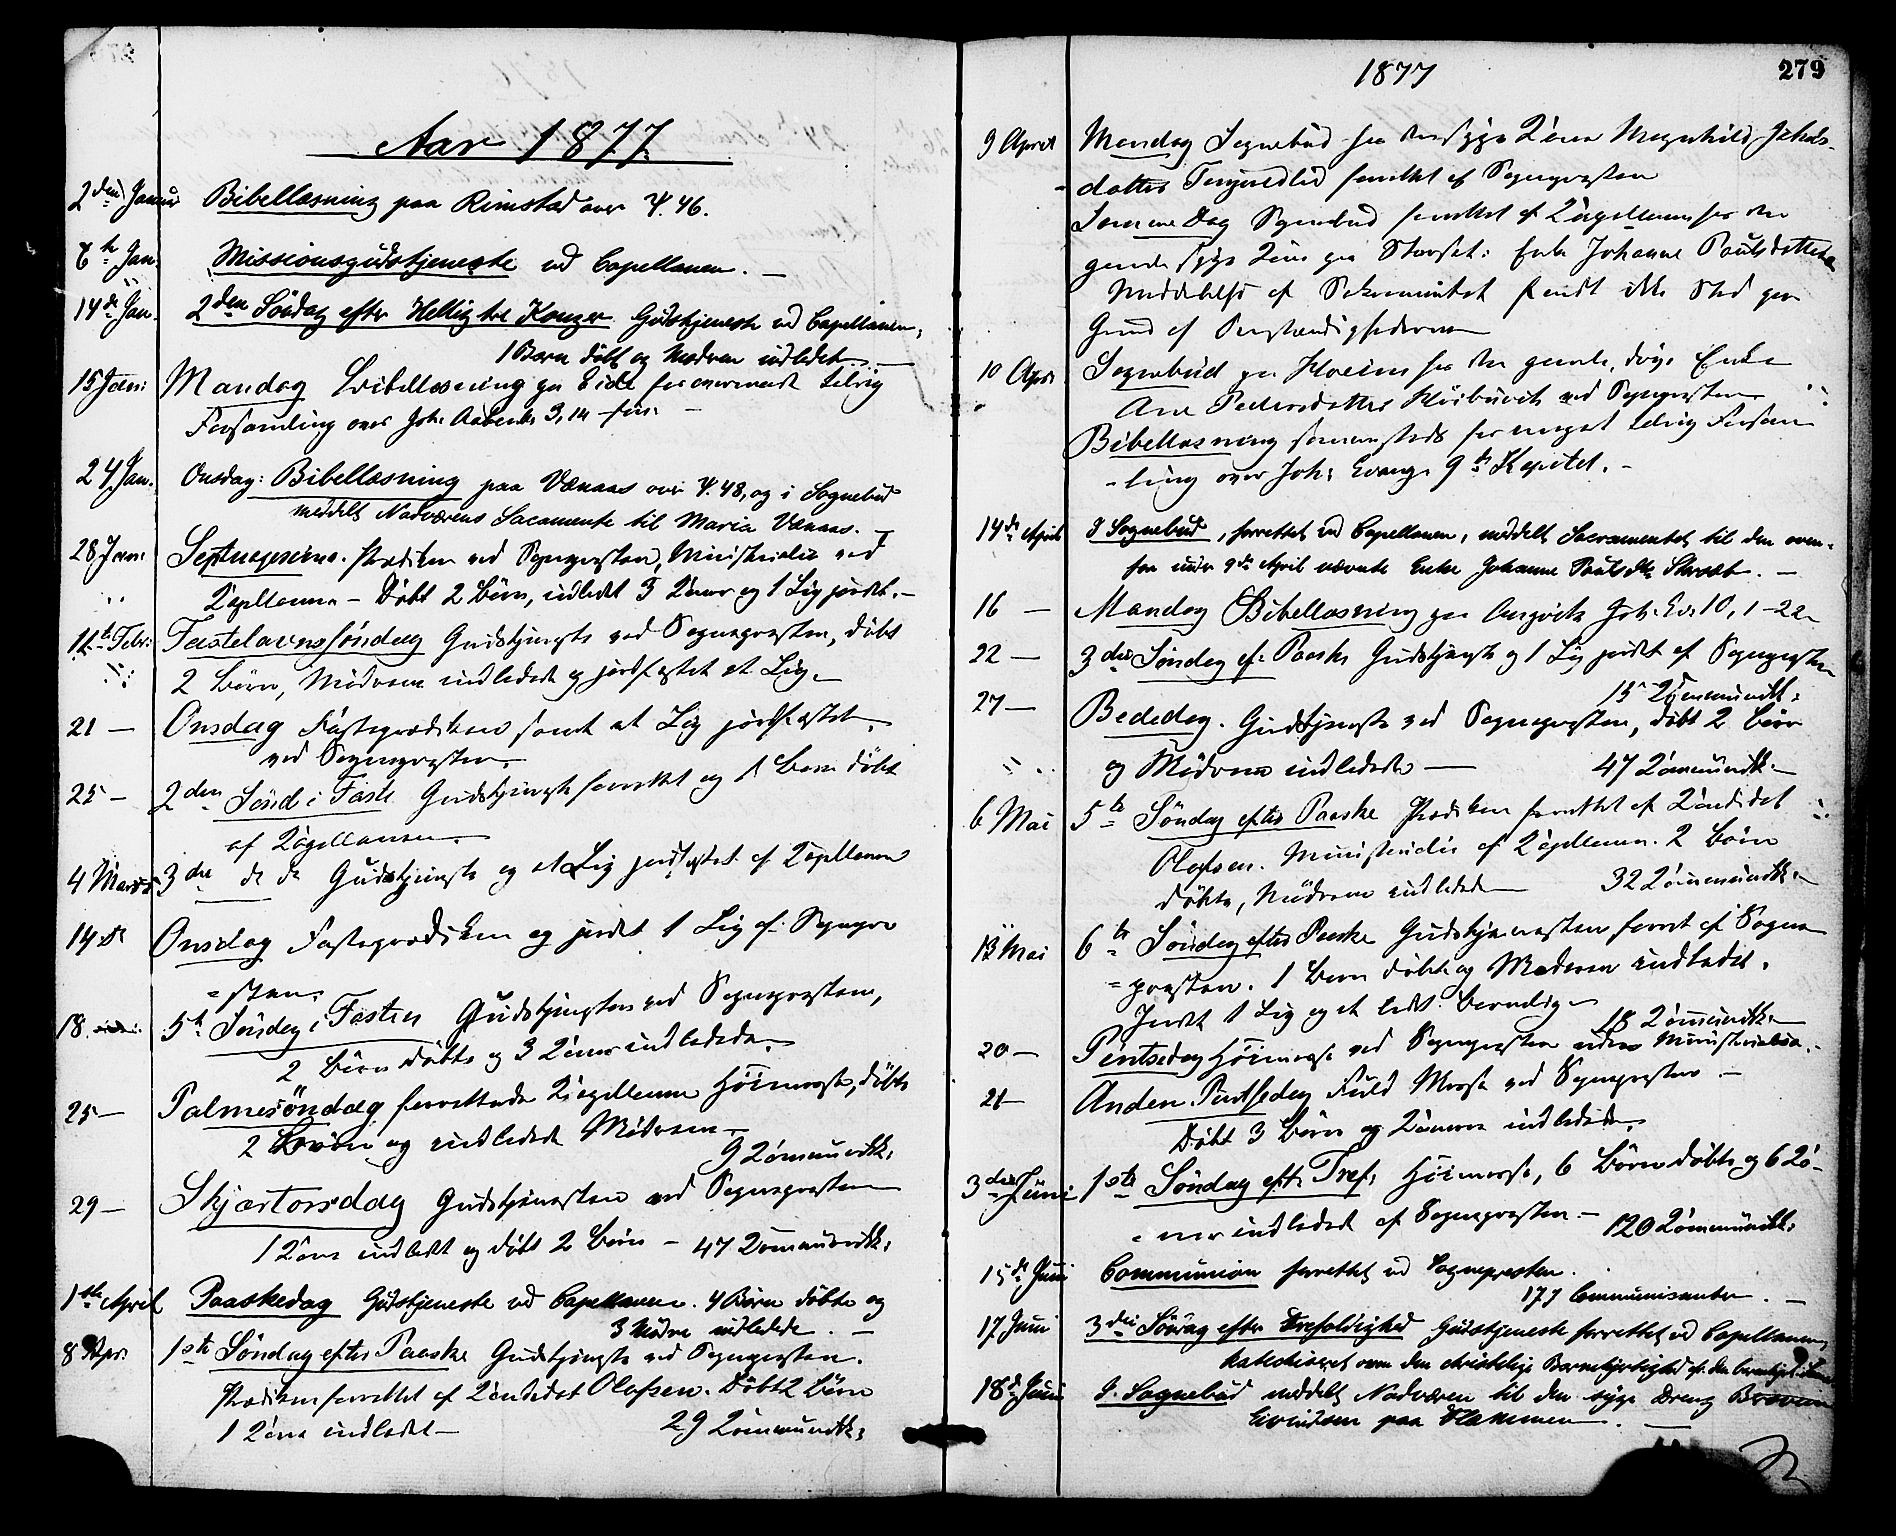 Aar 1877.
2den Januar Bibellæsning paa Rimstad over Ψ. 46.
6te Jan. Missionsgudstjeneste ved Capellanen. —
14de Jan. 2den Söndag efter Hellig tre Konger Gudstjeneste ved Capellanen,
1 Barn döbt og Modren indledet. —
15 Jan: Mandag Bibellæsning paa Eide for overmaade talrig
Forsamling over Joh. Aabenb. 3, 14 —
24 Jan. Onsdag: Bibellæsning paa Vænaas over Ψ. 48, og i Sognebud
meddelt Nadverens Sacamente til Maria Vænaas. —
28 Jan: Septuagesima. Prædiken ved Sognepresten, Ministerialia ved
Kapellanen — Döbt 2 Börn, indledet 3 Koner og 1 Lig jordet. —
11te Febr: Fastelavnssöndag Gudstjeneste ved Sognepresten, döbt
2 Börn, Mödrene indledet og jordfæstet et Lig.
21 — Onsdag Fasteprædiken samt et Lig jordfæstet
ved Sognepresten.
25 — 2den Sönd i Faste Gudstjeneste forrettet og 1 Barn döbt
af Kapellanen.
4 Marts 3die do do Gudstjeneste og et Lig jordfæstet af Kapellanen
14 de Onsdag Fasteprædiken og jordet 1 Lig af Sognepre
=sten.
18 5te Söndag i Fasten Gudstjenesten ved Sognepresten,
2 Börn döbte og 3 Koner indledede.
25 — Palmesöndag forrettede Kapellanen Höimesse, döbte
2 Börn og indledede Mödrene —
9 Kommunik:
29 — Skjærtorsdag Gudstjenesten ved Sognepresten
1 Kone indledt og döbt 2 Börn — 47 Kommunik:
1ste April Paaskedag Gudstjeneste ved Capellanen. 4 Börn döbte og
3 Mödre indledede. —
8 Apr: 1ste Söndag efter Paaske Gudstjeneste ved Sognepresten.
Prædiken forrettet af Kandidat Olafsen. Döbt 2 Börn
1 Kone indledet — 29 Kommunik:
1877
279
9 April Mandag Sognebud for den syge Kone Magnhild Jakobs-
datter forrettet af Sognepresten
Samme Dag Sognebud forrettet af Kapellanen for den
gamle syge Kone paa Skorset: Enke Johanne Poulsdatter
Meddelelse af Sakramentet fandt ikke Sted paa
Grund af Omstændighederne
10 Apr: Sognebud paa for den gamle, Enke
Ane Pedersdatter ved Sognepresten
Bibellæsning sammesteds for meget talrig Forsam
-ling over Joh: Evang. 9de Kapitel. —
14de April I Sognebud, forrettet ved Capellanen, meddelt Sacramentet til den oven-
for under 9de April nævnte Enke Johanne Poulsdtr. —
16 — Mandag Bibellæsning paa Joh. Ev. 10, 1-22
22 — 3die Söndag ef: Paaske Gudstjeneste og 1 Lig jordet af Sognepresten
15 Kommunik:
27 — Bededag. Gudstjeneste ved Sognepresten, döbt 2 Börn
og Mödrene indledede — 47 Kommunik.
6 Mai 5te Söndag efter Paaske Prædiken forrettet af Kandidat
Olafsen. Ministerialia af Kapellanen. 2 Börn
döbte, Mödrene indledede — 32 Kommunik.
13 Mai 6te Söndag efter Paaske Gudstjenesten forret af Sogne
=presten. 1 Barn döbt og Moderen indledet.
Jordet 1 Lig og et
18 Kommunik.
20 — Pintsedag Höimesse ved Sognepresten uden Ministerialia. —
21 — Anden Pintsedag Fuld Messe ved Sognepresten —
Döbt 3 Börn og Konerne indledede.
3die Juni 1ste Söndag eft. Tref: Höimesse, 6 Börn döbte og 6 Ko-
=ner indledede af Sognepresten — 120 Kommunik:
15de Juni Communion forrettet ved Sognepresten.
177 Communicanter. —
17 Juni 3die Söndag efter Trefoldighed Gudstjeneste forrettet ved Capellanen,
katechiseret over den christelige
18de Juni I Sognebud meddelt Nadveren til den syge Dreng
Eivindsen paa. —